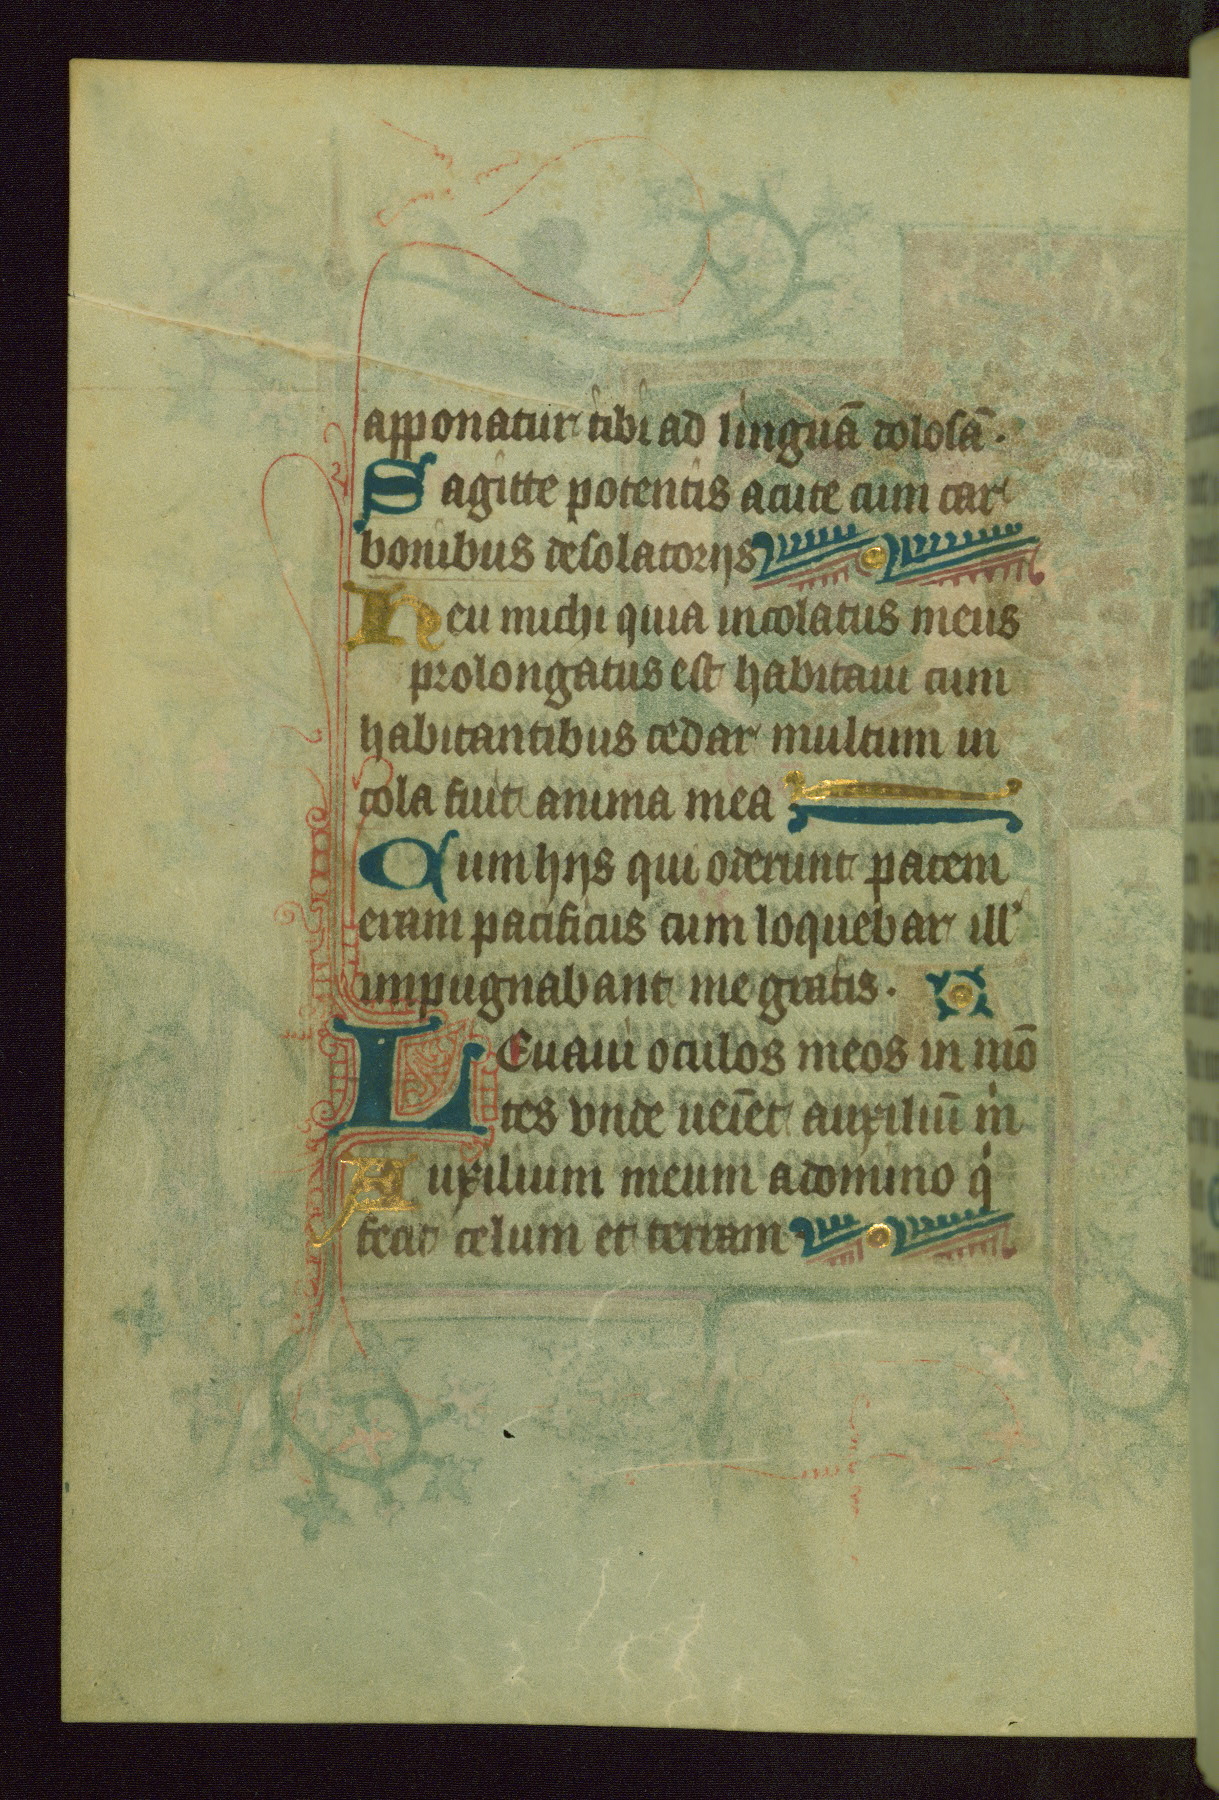 apponatur tibi ad linguā dolosā.
Sagitte potentis acute cum car
bonibus desolatorijs
Heu michi quia incolatus meus
prolongatus est habitaui cum
habitantibus cedar multum in
cola fiut anima mea
Cum hijs qui oderunt pacem
eram pacificus cum loquebar ill'
impugnabant me gratis.
LEuaui oculos meos in mō
tes vnde ueīet auxiliū m
Auxilium meum a domino q
fecit celum et terram